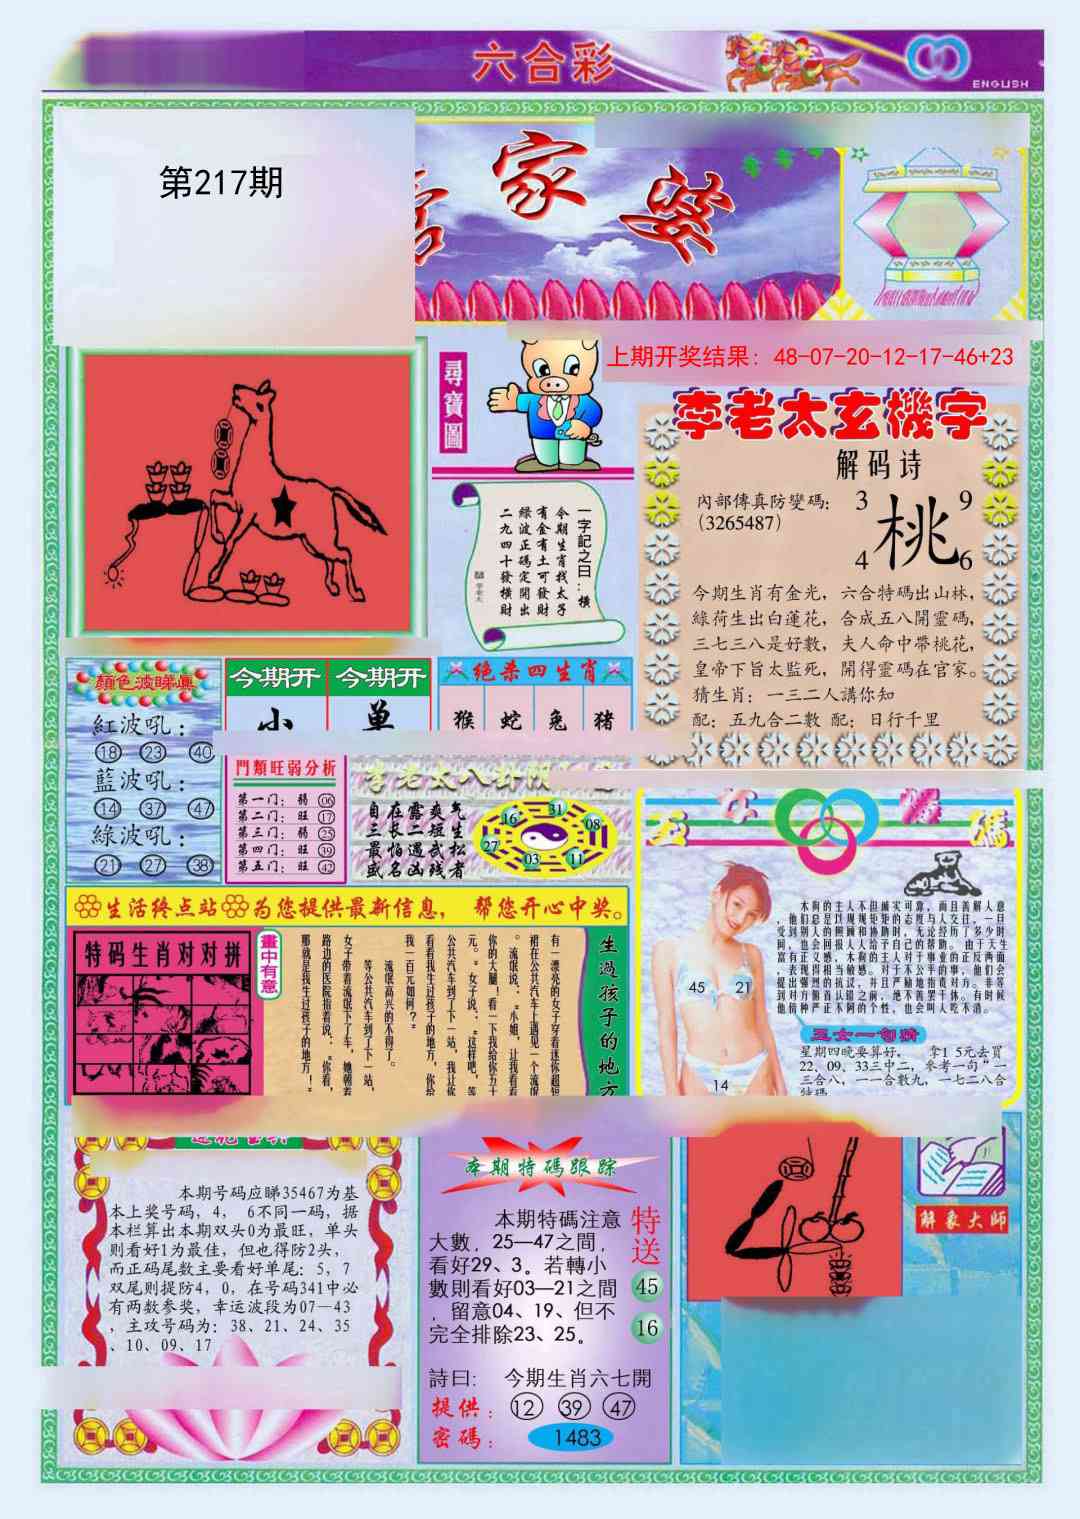 六合彩
ENGLISH
第217期
家婆
上期开奖结果：48-07-20-12-17-46+23
尋寶圖
一字記之曰：橫
今期生肖找太子
有金有土可發財
綠波正碼定開出
二九四十發橫財
李老太玄機字
解码诗
內部傳真防變碼：
(3265487)
3 9
桃
4 6
今期生肖有金光，六合特碼出山林，
綠荷生出白蓮花，合成五八開靈碼，
三七三八是好數，夫人命中帶桃花，
皇帝下旨太監死，開得靈碼在官家。
猜生肖：一三二人講你知
配：五九合二數 配：日行千里
顏色波睇真
紅波吼：
18 23 40
藍波吼：
14 37 47
綠波吼：
21 27 38
今期开 今期开
小 单
绝杀四生肖
猴 蛇 兔 猪
門類旺弱分析
第一门：弱 06
第二门：旺 17
第三门：弱 25
第四门：旺 39
第五门：旺 42
李老太八卦阴
自在露爽气
三长二短生
最怕遇武松
或名凶残者
16 31 08
27 03 11
生活终点站 为您提供最新信息， 帮您开心中奖。
特码生肖对对拼
畫中有意
生過孩子的地方
有一漂亮的女子穿着迷你超短
裙在公共汽车上遇见一个流氓
。流氓说：“小姐，让我看看
你的大腿！看一下我给你五十
元。”女子说：“这样吧，等
公共汽车到了下一站，我让你
看看我生过孩子的地方，你给
我一百元如何？”
流氓高兴的不得了。
等公共汽车到了下一站，
女子带着流氓下了车，她朝着
路边的医院指着说：“你看，
那就是我生过孩子的地方！”
五女 碼
45 21
14
木狗的主人不但诚实可靠，而且善解人意
，他们总是以规规矩矩的态度与人交往，一旦
受到别人的照顾和协助时，无论经历了多少时
间，也会回报人人给予自己的帮助。由于天生
富有正义感，木狗的主人对于事业的正反两面
，表现得相当敏感。对于不公平的事，他们会
提出强烈的抗议，并且严励地指责对方。非等
到对方俯首认错之前，绝不善罢干休。有时候
他精神严正不苟的个性，也会叫人吃不消。
五女一句猜
星期四晚要算好， 拿1 5元去買
22、09、33三中二，參考一句“一
三合八，一一合數九，一七二八合
特碼
本期号码应睇35467为基
本上奖号码，4， 6不同一码，据
本栏算出本期双头0为最旺，单头
则看好1为最佳，但也得防2头，
而正码尾数主要看好单尾：5，7
双尾则提防4，0，在号码341中必
有两数参奖，幸运波段为07—43
，主攻号码为：38、21、24、35
、10、09、17
本期特碼跟踪
本期特碼注意
大數，25—47之間，
看好29、3。若轉小
數則看好03—21之間
，留意04、19、但不
完全排除23、25。
特送
45
16
詩曰： 今期生肖六七開
提供：12 39 47
密碼：1483
解象大师